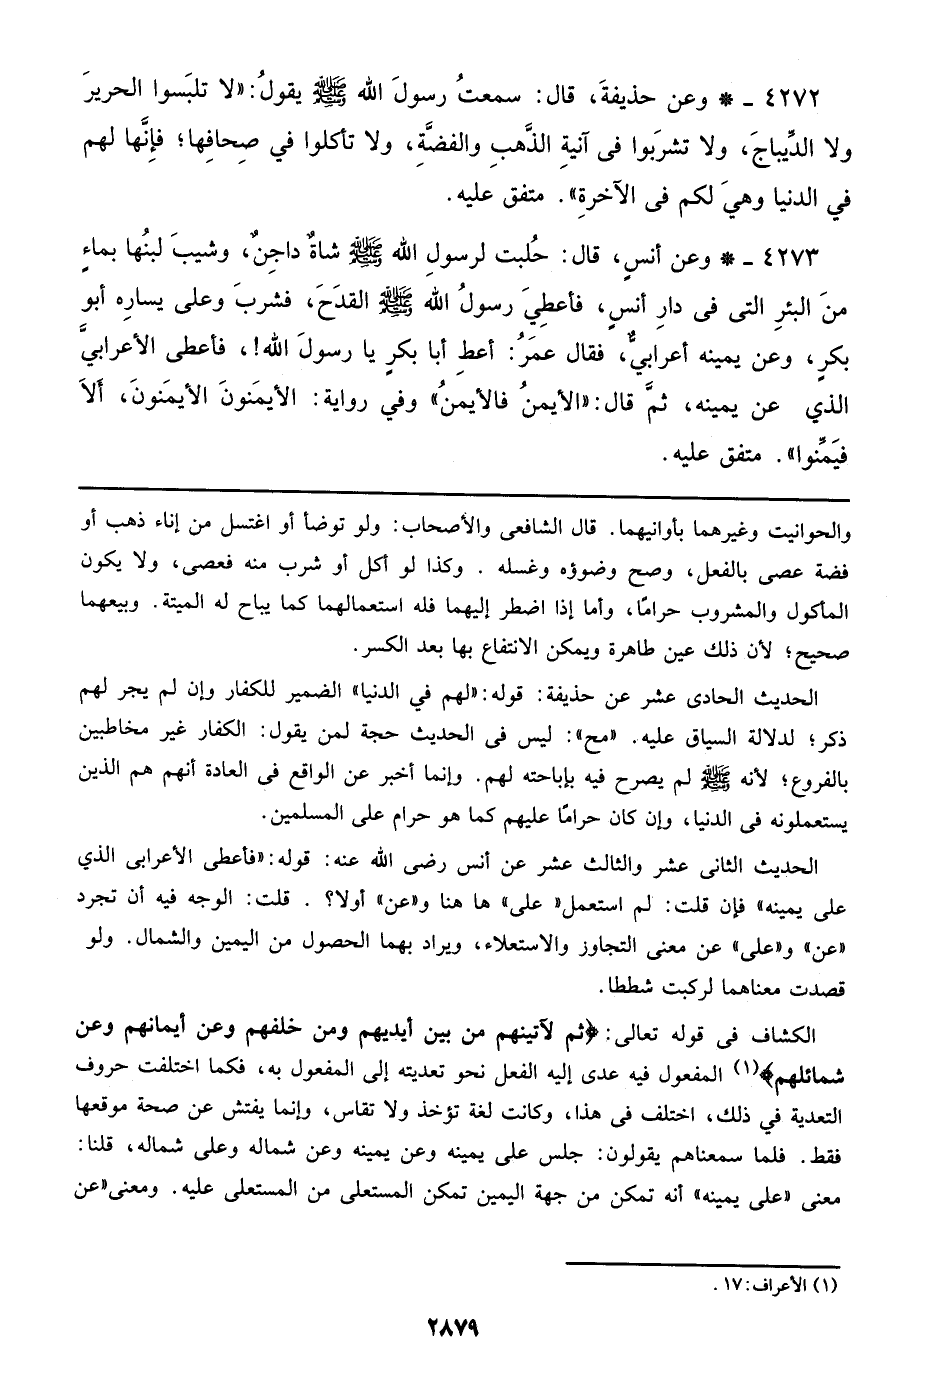 ٤٢٧٢ ـ * وعن حذيفةَ، قال: سمعتُ رسولَ الله ﷺ يقولُ:«لا تلبَسوا الحريرَ
ولا الدِّيباجَ، ولا تشرَبوا فى آنيةِ الذَّهبِ والفضَّةِ، ولا تأكلوا في صِحافِها؛ فإنَّها لهم
في الدنيا وهيَ لكم فى الآخرةِ». متفق عليه.
٤٢٧٣ ـ * وعن أنسٍ، قال: حُلبت لرسولِ الله ﷺ شاةٌ داجِنٌ، وشيبَ لبنُها بماءٍ
منَ البئرِ التى فى دارِ أنسٍ، فأعطِيَ رسولُ الله ﷺ القدَحَ، فشربَ وعلى يسارِه أبو
بكرٍ، وعن يمينه أعرابيٌّ، فقال عمَرُ: أعطِ أبا بكرٍ يا رسولَ الله!، فأعطى الأعرابيَّ
الذي عن يمينه، ثمَّ قال:«الأيمنُ فالأيمنُ» وفي رواية: الأيمَنونَ الأيمَنونَ، أَلاَ
فيَمِّنوا». متفق عليه.
والحوانيت وغيرهما بأوانيهما. قال الشافعى والأصحاب: ولو توضأ أو اغتسل من إناء ذهب أو
فضة عصى بالفعل، وصح وضوؤه وغسله . وكذا لو أكل أو شرب منه فعصى، ولا يكون
المأكول والمشروب حرامًا، وأما إذا اضطر إليهما فله استعمالهما كما يباح له الميتة. وبيعهما
صحيح؛ لأن ذلك عين طاهرة ويمكن الانتفاع بها بعد الكسر.
الحديث الحادى عشر عن حذيفة: قوله:«لهم في الدنيا» الضمير للكفار وإن لم يجر لهم
ذكر؛ لدلالة السياق عليه. «مح»: ليس فى الحديث حجة لمن يقول: الكفار غير مخاطبين
بالفروع؛ لأنه ﷺ لم يصرح فيه بإباحته لهم. وإنما أخبر عن الواقع فى العادة أنهم هم الذين
يستعملونه فى الدنيا، وإن كان حرامًا عليهم كما هو حرام على المسلمين.
الحديث الثانى عشر والثالث عشر عن أنس رضى الله عنه: قوله:«فأعطى الأعرابى الذي
على يمينه» فإن قلت: لم استعمل« على» ها هنا و«عن» أولا؟ . قلت: الوجه فيه أن تجرد
«عن» و«على» عن معنى التجاوز والاستعلاء، ويراد بهما الحصول من اليمين والشمال. ولو
قصدت معناهما لركبت شططا.
الكشاف فى قوله تعالى: ﴿ثم لآتينهم من بين أيديهم ومن خلفهم وعن أيمانهم وعن
شمائلهم﴾(١) المفعول فيه عدى إليه الفعل نحو تعديته إلى المفعول به، فكما اختلفت حروف
التعدية في ذلك، اختلف فى هذا، وكانت لغة تؤخذ ولا تقاس، وإنما يفتش عن صحة موقعها
فقط. فلما سمعناهم يقولون: جلس على يمينه وعن يمينه وعن شماله وعلى شماله، قلنا:
معنى «على يمينه» أنه تمكن من جهة اليمين تمكن المستعلى من المستعلى عليه. ومعنى«عن
(١) الأعراف:١٧ .
٢٨٧٩